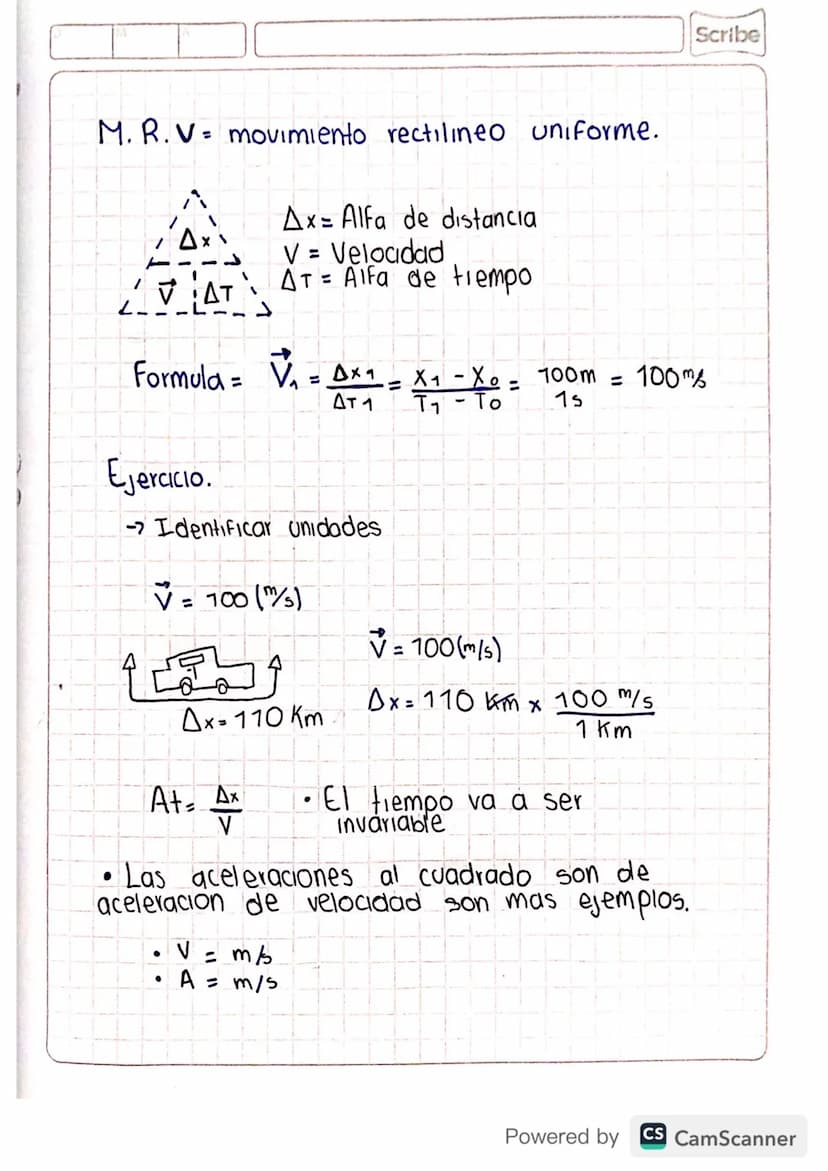 Scribe
M. R. V = movimiento rectilineo uniforme.
Δx = Alfa de distancia
Δx
V = Velocidad
V⃗ ΔT
ΔT = Alfa de tiempo
Formula = V⃗₁ = Δx1/ΔT1 = X₁ - X₀/T₁ - T₀ = 100m/1s = 100 m/s
Ejercicio.
→ Identificar unidades
V⃗ = 100 (m/s)
V⃗ = 100(m/s)
Δx = 110 Km x 100 m/s / 1 Km
Δx = 110 Km
At = Δx/V
• El tiempo va a ser
invariable
• Las aceleraciones al cuadrado son de
aceleracion de velocidad son mas ejemplos.
• V = m/s
• A = m/s
Powered by CS CamScanner